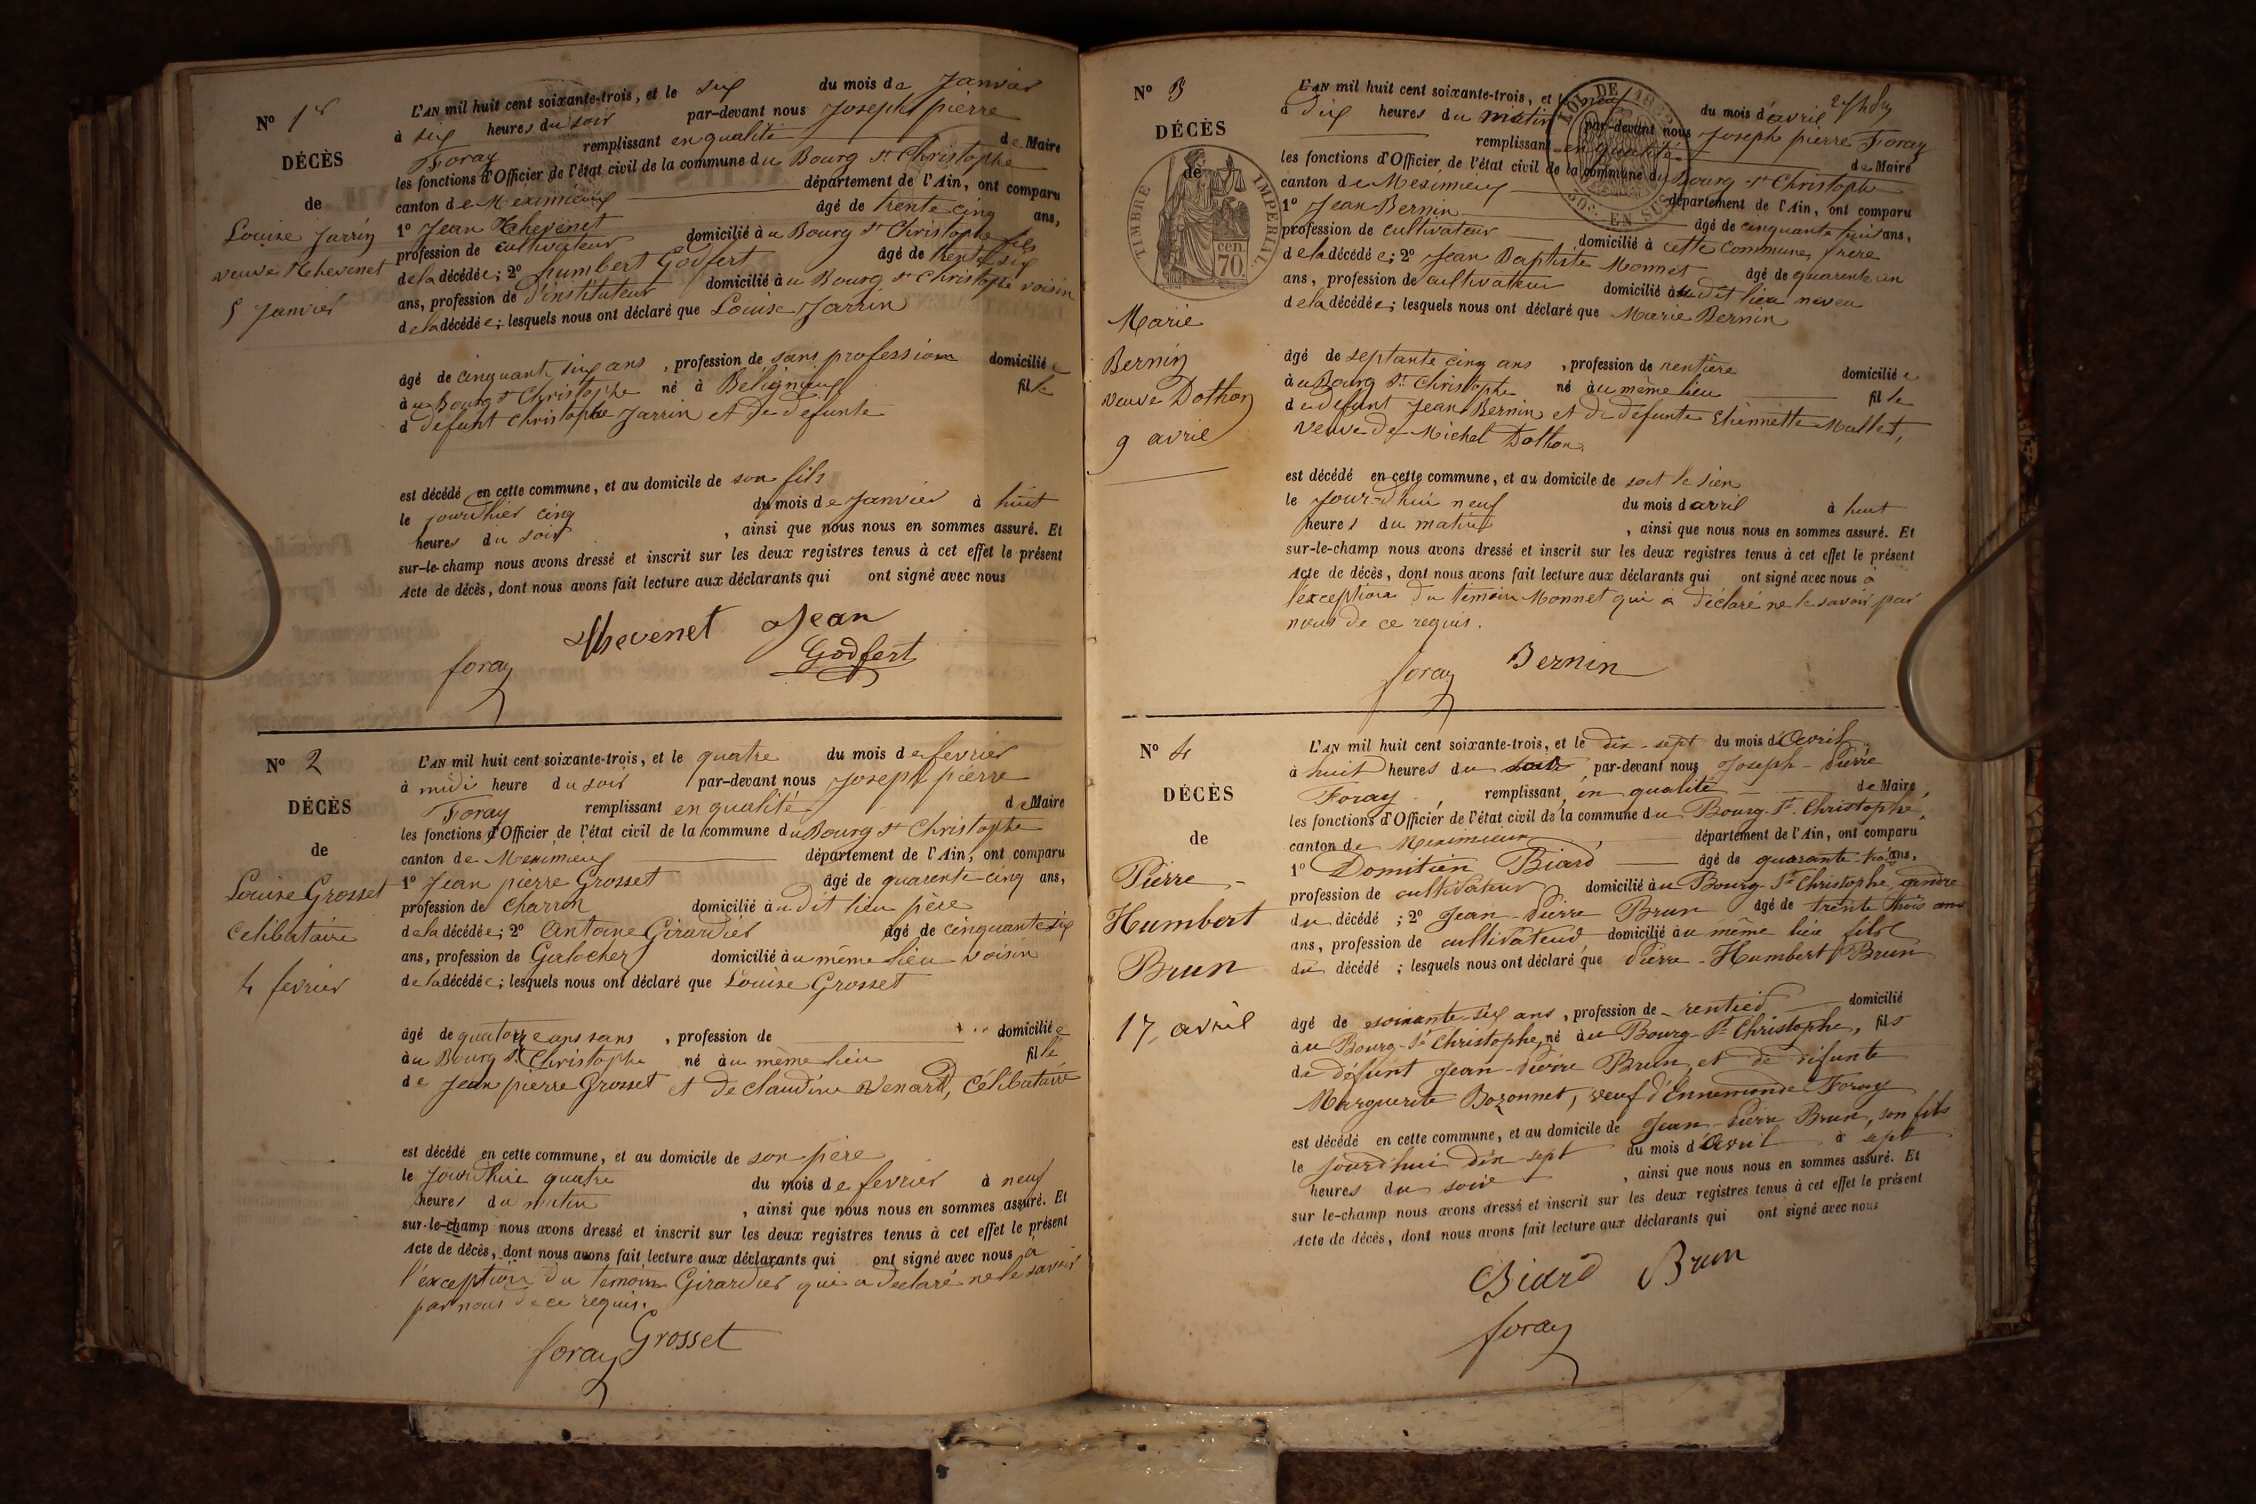 No 1er
DÉCÈS
de
Louise Jarrin
veuve Thevenet
5 Janvier
L'AN mil huit cent soixante-trois, et le six du mois de Janvier
à six heures du soir par-devant nous Joseph pierre
Foray remplissant en qualité de Maire
les fonctions d'Officier de l'état civil de la commune du Bourg St Christophe
canton de Meximieux département de l'Ain, ont comparu
1o Jean Thevenet âgé de trente cinq ans,
profession de cultivateur domicilié au Bourg St Christophe fils
de la décédée; 2o humbert Godfert âgé de trente six
ans, profession de d'instituteur domicilié au Bourg St Christophe voisin
de la décédée; lesquels nous ont déclaré que Louise Jarrin
âgé de cinquante six ans, profession de sans profession domiciliée
au Bourg St Christophe né à Béligneux fille
d défunt Christophe Jarrin et de defunte
est décédé en cette commune, et au domicile de son fils
le jourd'hier cinq du mois de Janvier à huit
heures du soir, ainsi que nous nous en sommes assuré. Et
sur-le-champ nous avons dressé et inscrit sur les deux registres tenus à cet effet le présent
Acte de décès, dont nous avons fait lecture aux déclarants qui ont signé avec nous
Thevenet Jean
foray Godfert
No 2
DÉCÈS
de
Louise Grosset
Celibataire
4 fevrier
L'AN mil huit cent soixante-trois, et le quatre du mois de fevrier
à midi heure du soir par-devant nous Joseph pierre
Foray remplissant en qualité de Maire
les fonctions d'Officier de l'état civil de la commune du Bourg St Christophe
canton de Meximieux département de l'Ain, ont comparu
1o Jean pierre Grosset âgé de quarente cinq ans,
profession de Charron domicilié au dit lieu père
de la décédée; 2o Antoine Girardier âgé de cinquante six
ans, profession de Galocher domicilié au même lieu voisin
de la décédée; lesquels nous ont déclaré que Louise Grosset
âgé de quatorze ans sans, profession de domiciliée
au Bourg St Christophe né au même lieu fille
de Jean pierre Grosset et de claudine Venard, Célibataire
est décédé en cette commune, et au domicile de son père
le jourd'hui quatre du mois de fevrier à neuf
heures du matin, ainsi que nous nous en sommes assuré. Et
sur-le-champ nous avons dressé et inscrit sur les deux registres tenus à cet effet le présent
Acte de décès, dont nous avons fait lecture aux déclarants qui ont signé avec nous à
l'exception du temoin Girardier qui a declaré ne le savoir
par nous de ce requis.
foray Grosset
No 3
DÉCÈS
de
TIMBRE IMPERIAL
cen. 70.
Marie
Bernin
veuve Dothon
9 avril
L'AN mil huit cent soixante-trois, et le neuf du mois d'avril
à dix heures du matin par-devant nous Joseph pierre Foray
remplissant en qualité de Maire
les fonctions d'Officier de l'état civil de la commune du Bourg St Christophe
canton de Meximieux département de l'Ain, ont comparu
1o Jean Bernin âgé de cinquante huit ans,
profession de cultivateur domicilié à cette Commune, frère
de la décédée; 2o Jean Baptiste Monnet âgé de quarente un
ans, profession de cultivateur domicilié au dit lieu neveu
de la décédée; lesquels nous ont déclaré que Marie Bernin
âgé de septante cinq ans, profession de rentière domiciliée
au Bourg St Christophe né au même lieu fille
de defunt Jean Bernin et de defunte Etiennette Mallet,
veuve de Michel Dothon
est décédé en cette commune, et au domicile de soit le sien
le Jour-d'hui neuf du mois d'avril à huit
heures du matin, ainsi que nous nous en sommes assuré. Et
sur-le-champ nous avons dressé et inscrit sur les deux registres tenus à cet effet le présent
Acte de décès, dont nous avons fait lecture aux déclarants qui ont signé avec nous à
l'exception du temoin Monnet qui a déclaré ne le savoir par
nous de ce requis.
foray Bernin
No 4
DÉCÈS
de
Pierre
Humbert
Brun
17, avril
L'AN mil huit cent soixante-trois, et le dix-sept du mois d'Avril
à huit heures du soir par-devant nous Joseph-Pierre
Foray, remplissant en qualité de Maire
les fonctions d'Officier de l'état civil de la commune du Bourg-St-Christophe,
canton de Meximieux, département de l'Ain, ont comparu
1o Domitien Biard âgé de quarante-trois ans,
profession de cultivateur domicilié au Bourg-St-Christophe, gendre
du décédé; 2o Jean-Pierre Brun âgé de trente trois ans
ans, profession de cultivateur domicilié au même lieu fils
du décédé; lesquels nous ont déclaré que Pierre-Humbert Brun
âgé de soixante-six ans, profession de rentier domicilié
au Bourg-St Christophe, né au Bourg-St-Christophe, fils
de défunt Jean-Pierre Brun, et de défunte
Marguerite Bozonnet, veuf d'Ennemonde Foray
est décédé en cette commune, et au domicile de Jean-Pierre Brun, son fils
le jourd'hui dix-sept du mois d'Avril à sept
heures du soir, ainsi que nous nous en sommes assuré. Et
sur le-champ nous avons dressé et inscrit sur les deux registres tenus à cet effet le présent
Acte de décès, dont nous avons fait lecture aux déclarants qui ont signé avec nous
Biard Brun
foray